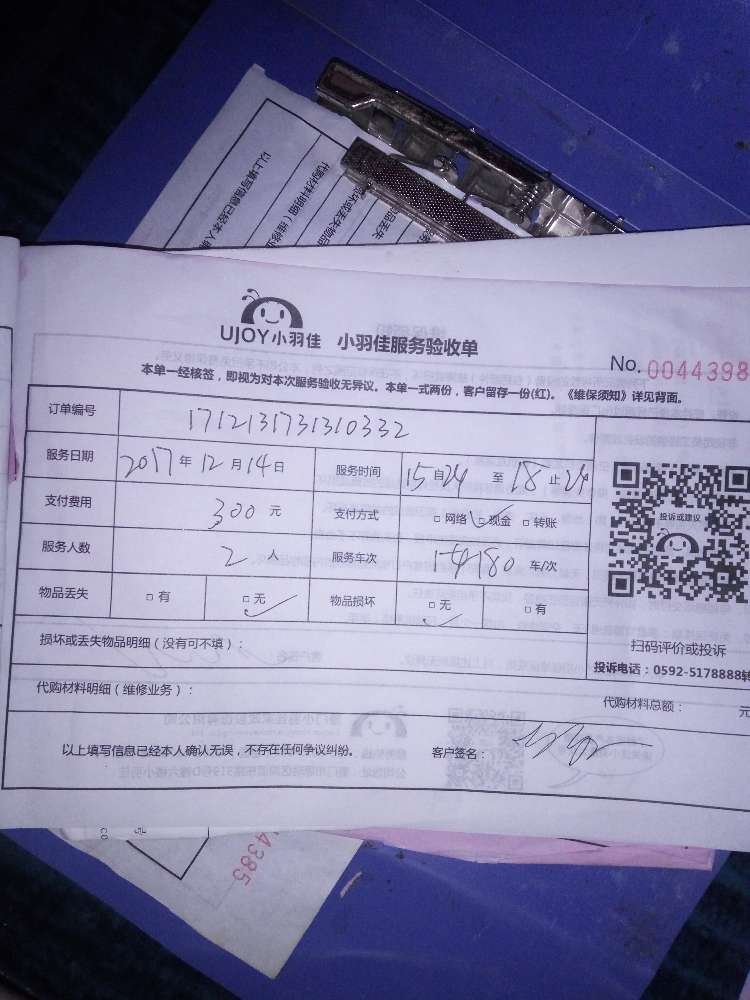 UJOY小羽佳 小羽佳服务验收单
No. 0044398
本单一经核签，即视为对本次服务验收无异议。本单一式两份，客户留存一份(红)。《维保须知》详见背面。
订单编号 1712131731310332
服务日期 2017年12月14日 服务时间 15自24 至 18止24
支付费用 300 元 支付方式 □网络 □现金 □转账
服务人数 2 人 服务车次 车/次
物品丢失 □有 □无 物品损坏 □无 □有
投诉或建议
扫码评价或投诉
投诉电话：0592-5178888转
损坏或丢失物品明细（没有可不填）：
代购材料明细（维修业务）：
代购材料总额： 元
以上填写信息已经本人确认无误，不存在任何争议纠纷。 客户签名：
44385